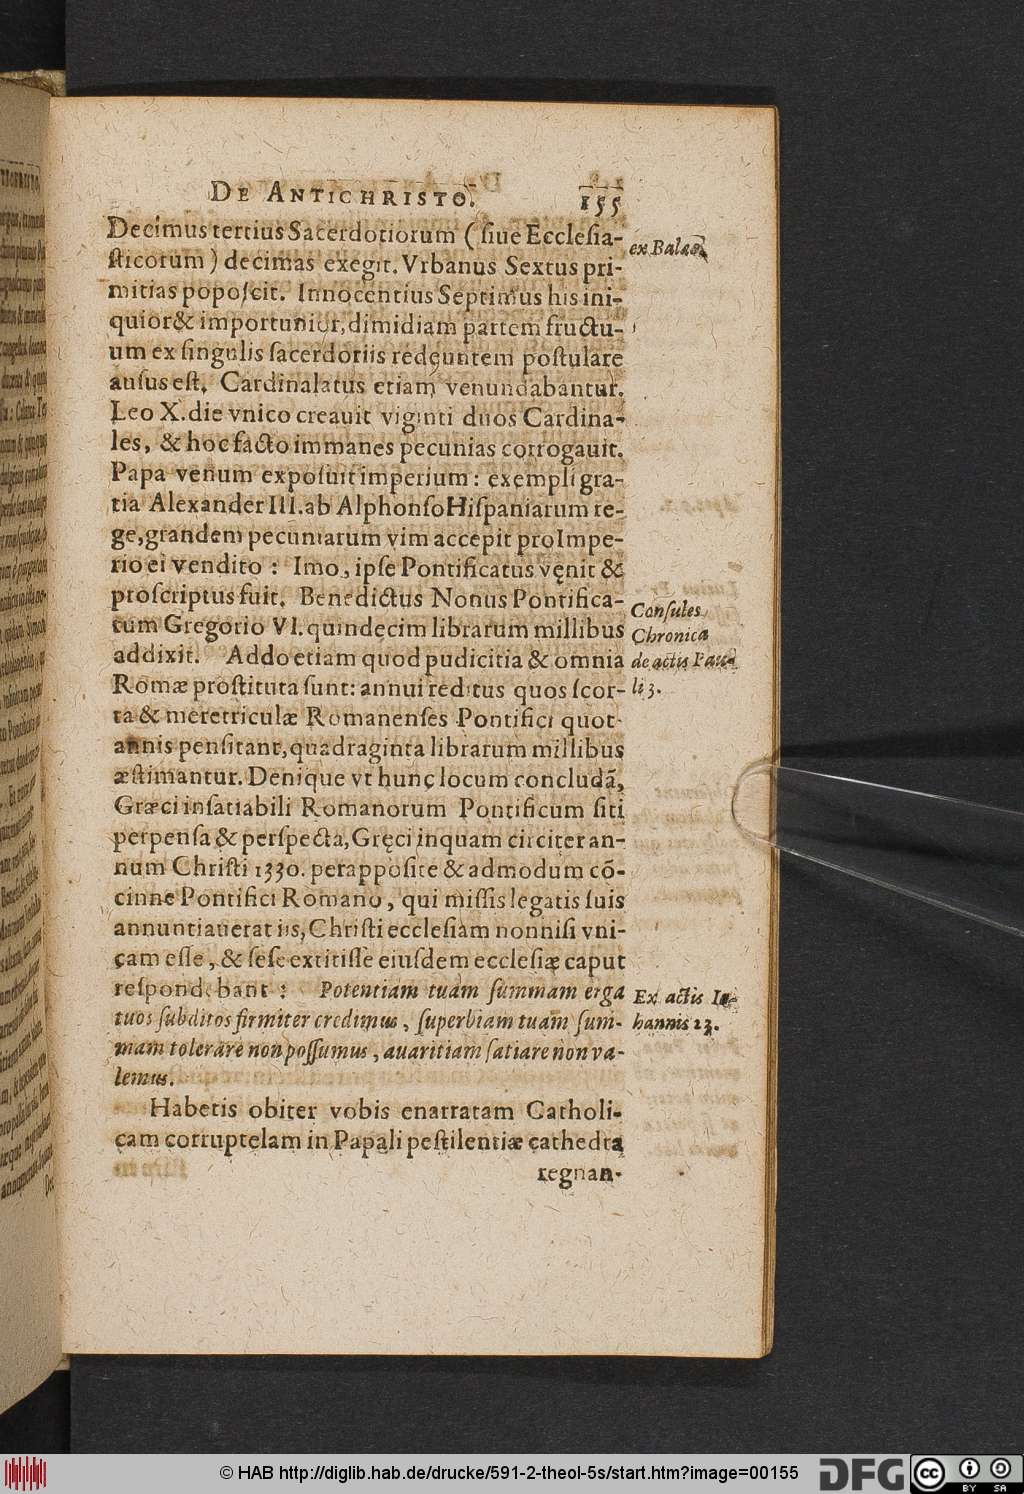 DE ANTICHRISTO. 155
Decimus tertius Sacerdotiorum (ſiue Eccleſia-
ex Balæo.
ſticorum) decimas exegit. Vrbanus Sextus pri-
mitias popoſcit. Innocentius Septimus his ini-
quior & importunior, dimidiam partem fructu-
um ex ſingulis ſacerdotiis redeuntem poſtulare
auſus eſt. Cardinalatus etiam venundabantur.
Leo X. die vnico creauit viginti duos Cardina-
les, & hoc facto immanes pecunias corrogauit.
Papa venum expoſuit imperium: exempli gra-
tia Alexander III. ab Alphonſo Hiſpaniarum re-
ge, grandem pecuniarum vim accepit pro Impe-
rio ei vendito: Imo, ipſe Pontificatus vęnit &
proſcriptus fuit. Benedictus Nonus Pontifica-
Conſules
tum Gregorio VI. quindecim librarum millibus
Chronica
addixit. Addo etiam quod pudicitia & omnia
de actis Pau-
Romæ proſtituta ſunt: annui reditus quos ſcor-
li 3.
ta & meretriculæ Romanenſes Pontifici quot
annis penſitant, quadraginta librarum millibus
æſtimantur. Denique vt hunc locum concludã,
Græci inſatiabili Romanorum Pontificum ſiti
perpenſa & perſpecta, Gręci inquam circiter an-
num Chriſti 1330. perappoſite & admodum cõ-
cinne Pontifici Romano, qui miſſis legatis ſuis
annuntiauerat iis, Chriſti eccleſiam nonniſi vni-
cam eſſe, & ſeſe extitiſſe eiuſdem eccleſiæ caput
reſpondebant: Potentiam tuam ſummam erga
Ex actis Io-
tuos ſubditos firmiter credimus, ſuperbiam tuam ſum-
hannis 23.
mam tolerare non poſſumus, auaritiam ſatiare non va-
lemus.
Habetis obiter vobis enarratam Catholi-
cam corruptelam in Papali peſtilentiæ cathedra
regnan-
© HAB http://diglib.hab.de/drucke/591-2-theol-5s/start.htm?image=00155
DFG
cc
BY SA